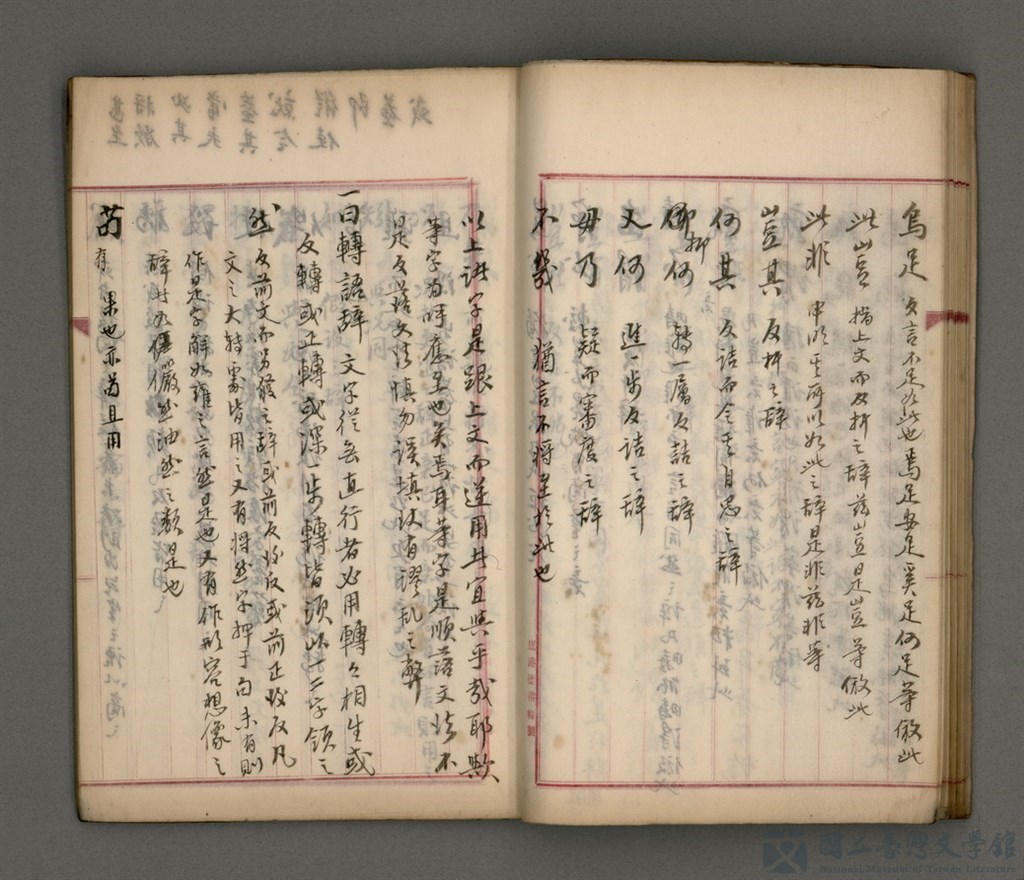 烏足 文言不足如此也焉足安足奚足何足等倣此
此豈 指上文而反折之辞茲豈是豈等倣此
此非 申明其所以如此之辞是非茲非等
豈其 反折之辞
何其 反詰而令其自思之辞
抑何 轉一層反詰之辞
又何 進一步反詰之辞
毋乃 疑而審度之辞
不幾 猶言不將至於此也
以上諸字是跟上文而逆用其宜與乎哉耶歟
等字為呼應至也矣焉耳等字是順落文法不
是反落文法慎勿误填致有謬乱之弊
一曰轉語辞 文字從無直行者必用轉々相生或
反轉或正轉或深一步轉皆須以一二字領之
然 反前文而另發之辞或前反後反或前正後反凡
文之大轉處皆用之又有將然字押于句末有則
作是字解如雍之言然是也又有作形容想像之
辞時如儼然油然之類是也
苟 果也亦苟且用
國立臺灣文學館
National Museum of Taiwan Literature